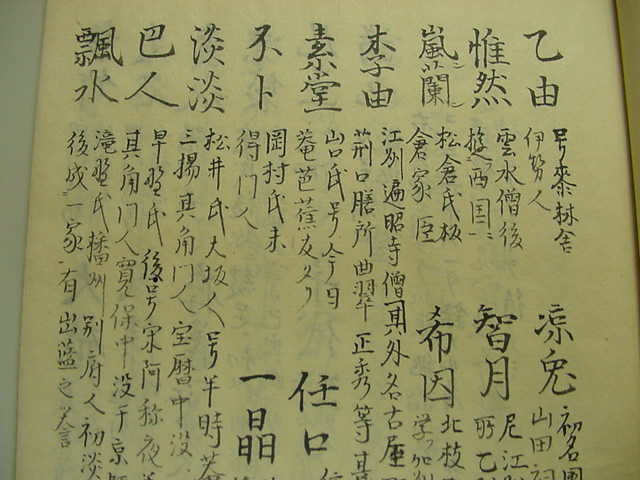 乙由
号麥林舎
伊勢人
涼菟
初名團
山田
惟然
雲水僧後
遊西国ニ
智月
尼江刕
所乙
嵐蘭
松倉氏板
倉家臣
希因
北枝
学加州
李由
江刕遍昭寺僧其外名古屋
荊口膳所曲翠正秀等
素堂
山口氏号今日
菴芭蕉友タリ
任口
不卜
岡村氏未
得門人
一晶
淡淡
松井氏大坂人号半時
三揚其角門人宝暦中没
巴人
早野氏後号宋阿称夜
其角門人寛保中没于京
飄水
滝野氏播州別府人初淡
後成一家有出藍之誉